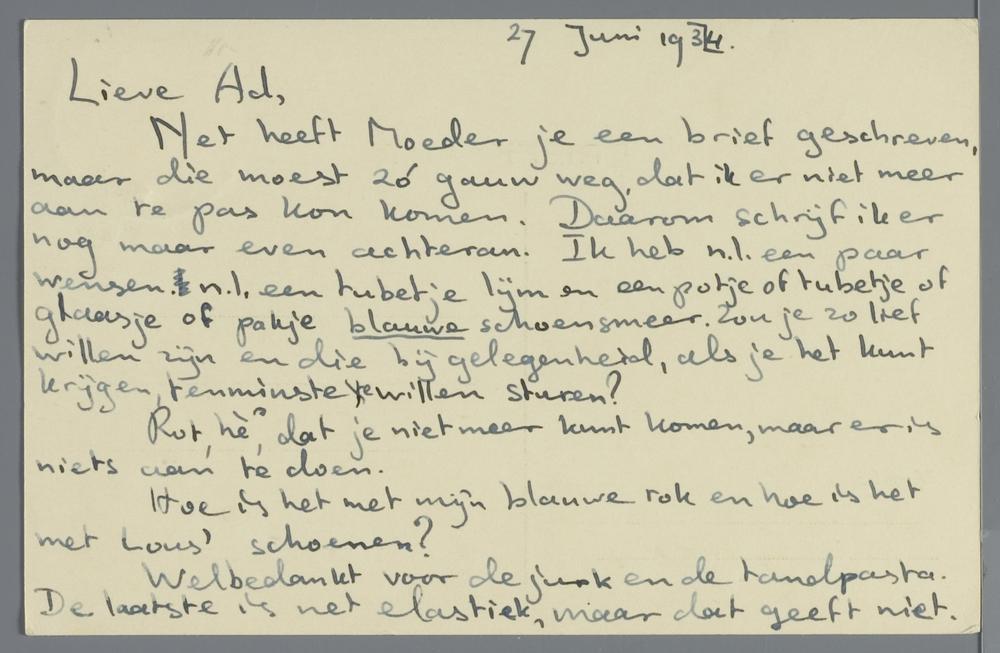 27 Juni 1934.
Lieve Ad,
Net heeft Moeder je een brief geschreven,
maar die moest zó gauw weg, dat ik er niet meer
aan te pas kon komen. Daarom schrijf ik er
nog maar even achteran. Ik heb n.l. een paar
wensen. n.l. een tubetje lijm en een potje of tubetje of
glaasje of pakje blauwe schoensmeer. Zou je zo lief
willen zijn en die bij gelegenheid, als je het kunt
krijgen, tenminste, te willen sturen?
Rot, hè, dat je niet meer kunt komen, maar er is
niets aan te doen.
Hoe is het met mijn blauwe rok en hoe is het
met Lous' schoenen?
Welbedankt voor de jurk en de tandpasta.
De laatste is net elastiek, maar dat geeft niet.